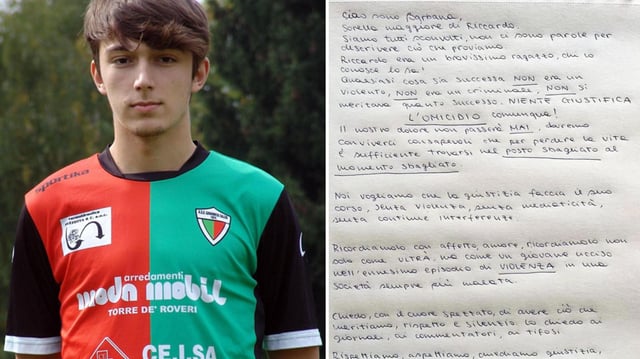 sportika
arredamenti
moda mobil
TORRE DE' ROVERI
CE.I.SA
Ciao sono Barbara,
Sorella maggiore di Riccardo.
Siamo tutti sconvolti, non ci sono parole per
descrivere ciò che proviamo.
Riccardo era un bravissimo ragazzo, chi lo
conosce lo sa!
Qualsiasi cosa sia successa NON era un
violento, NON era un criminale, NON si
meritava quanto successo. NIENTE GIUSTIFICA
L'OMICIDIO comunque!
Il nostro dolore non passerà MAI, dovremo
conviverci consapevoli che per perdere la vita
è sufficiente trovarsi nel posto sbagliato al
momento sbagliato.
Noi vogliamo che la giustizia faccia il suo
corso, senza violenza, senza mediaticità,
senza continue interferenze.
Ricordiamolo con affetto, amore, ricordiamolo non
solo come ULTRÀ, ma come un giovane ucciso
nell'ennesimo episodio di VIOLENZA in una
società sempre più malata.
Chiedo, con il cuore spezzato, di avere ciò che
meritiamo, rispetto e silenzio. Lo chiedo ai
giornali, ai commentatori, ai tifosi.
Rispettiamo, aspettiamo, crediamo giustizia,